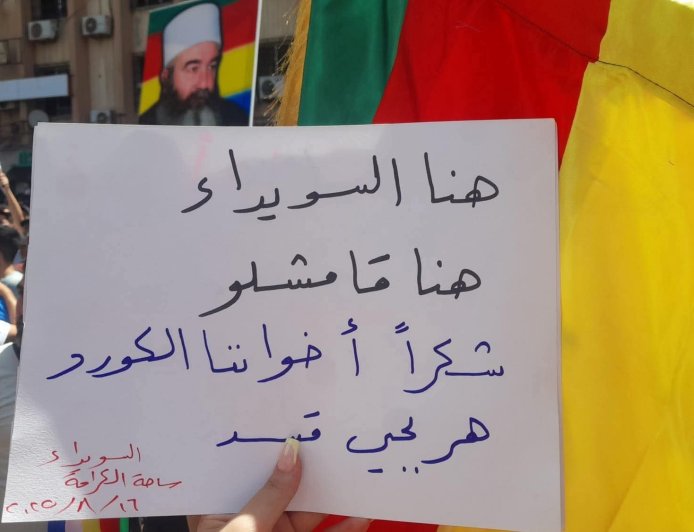 هنا السويداء
هنا قامشلو
شكراً أخواتنا الكورد
هر بجي قسد
السويداء
ساحة الكرامة
٢٠٢٥/٨/١٦